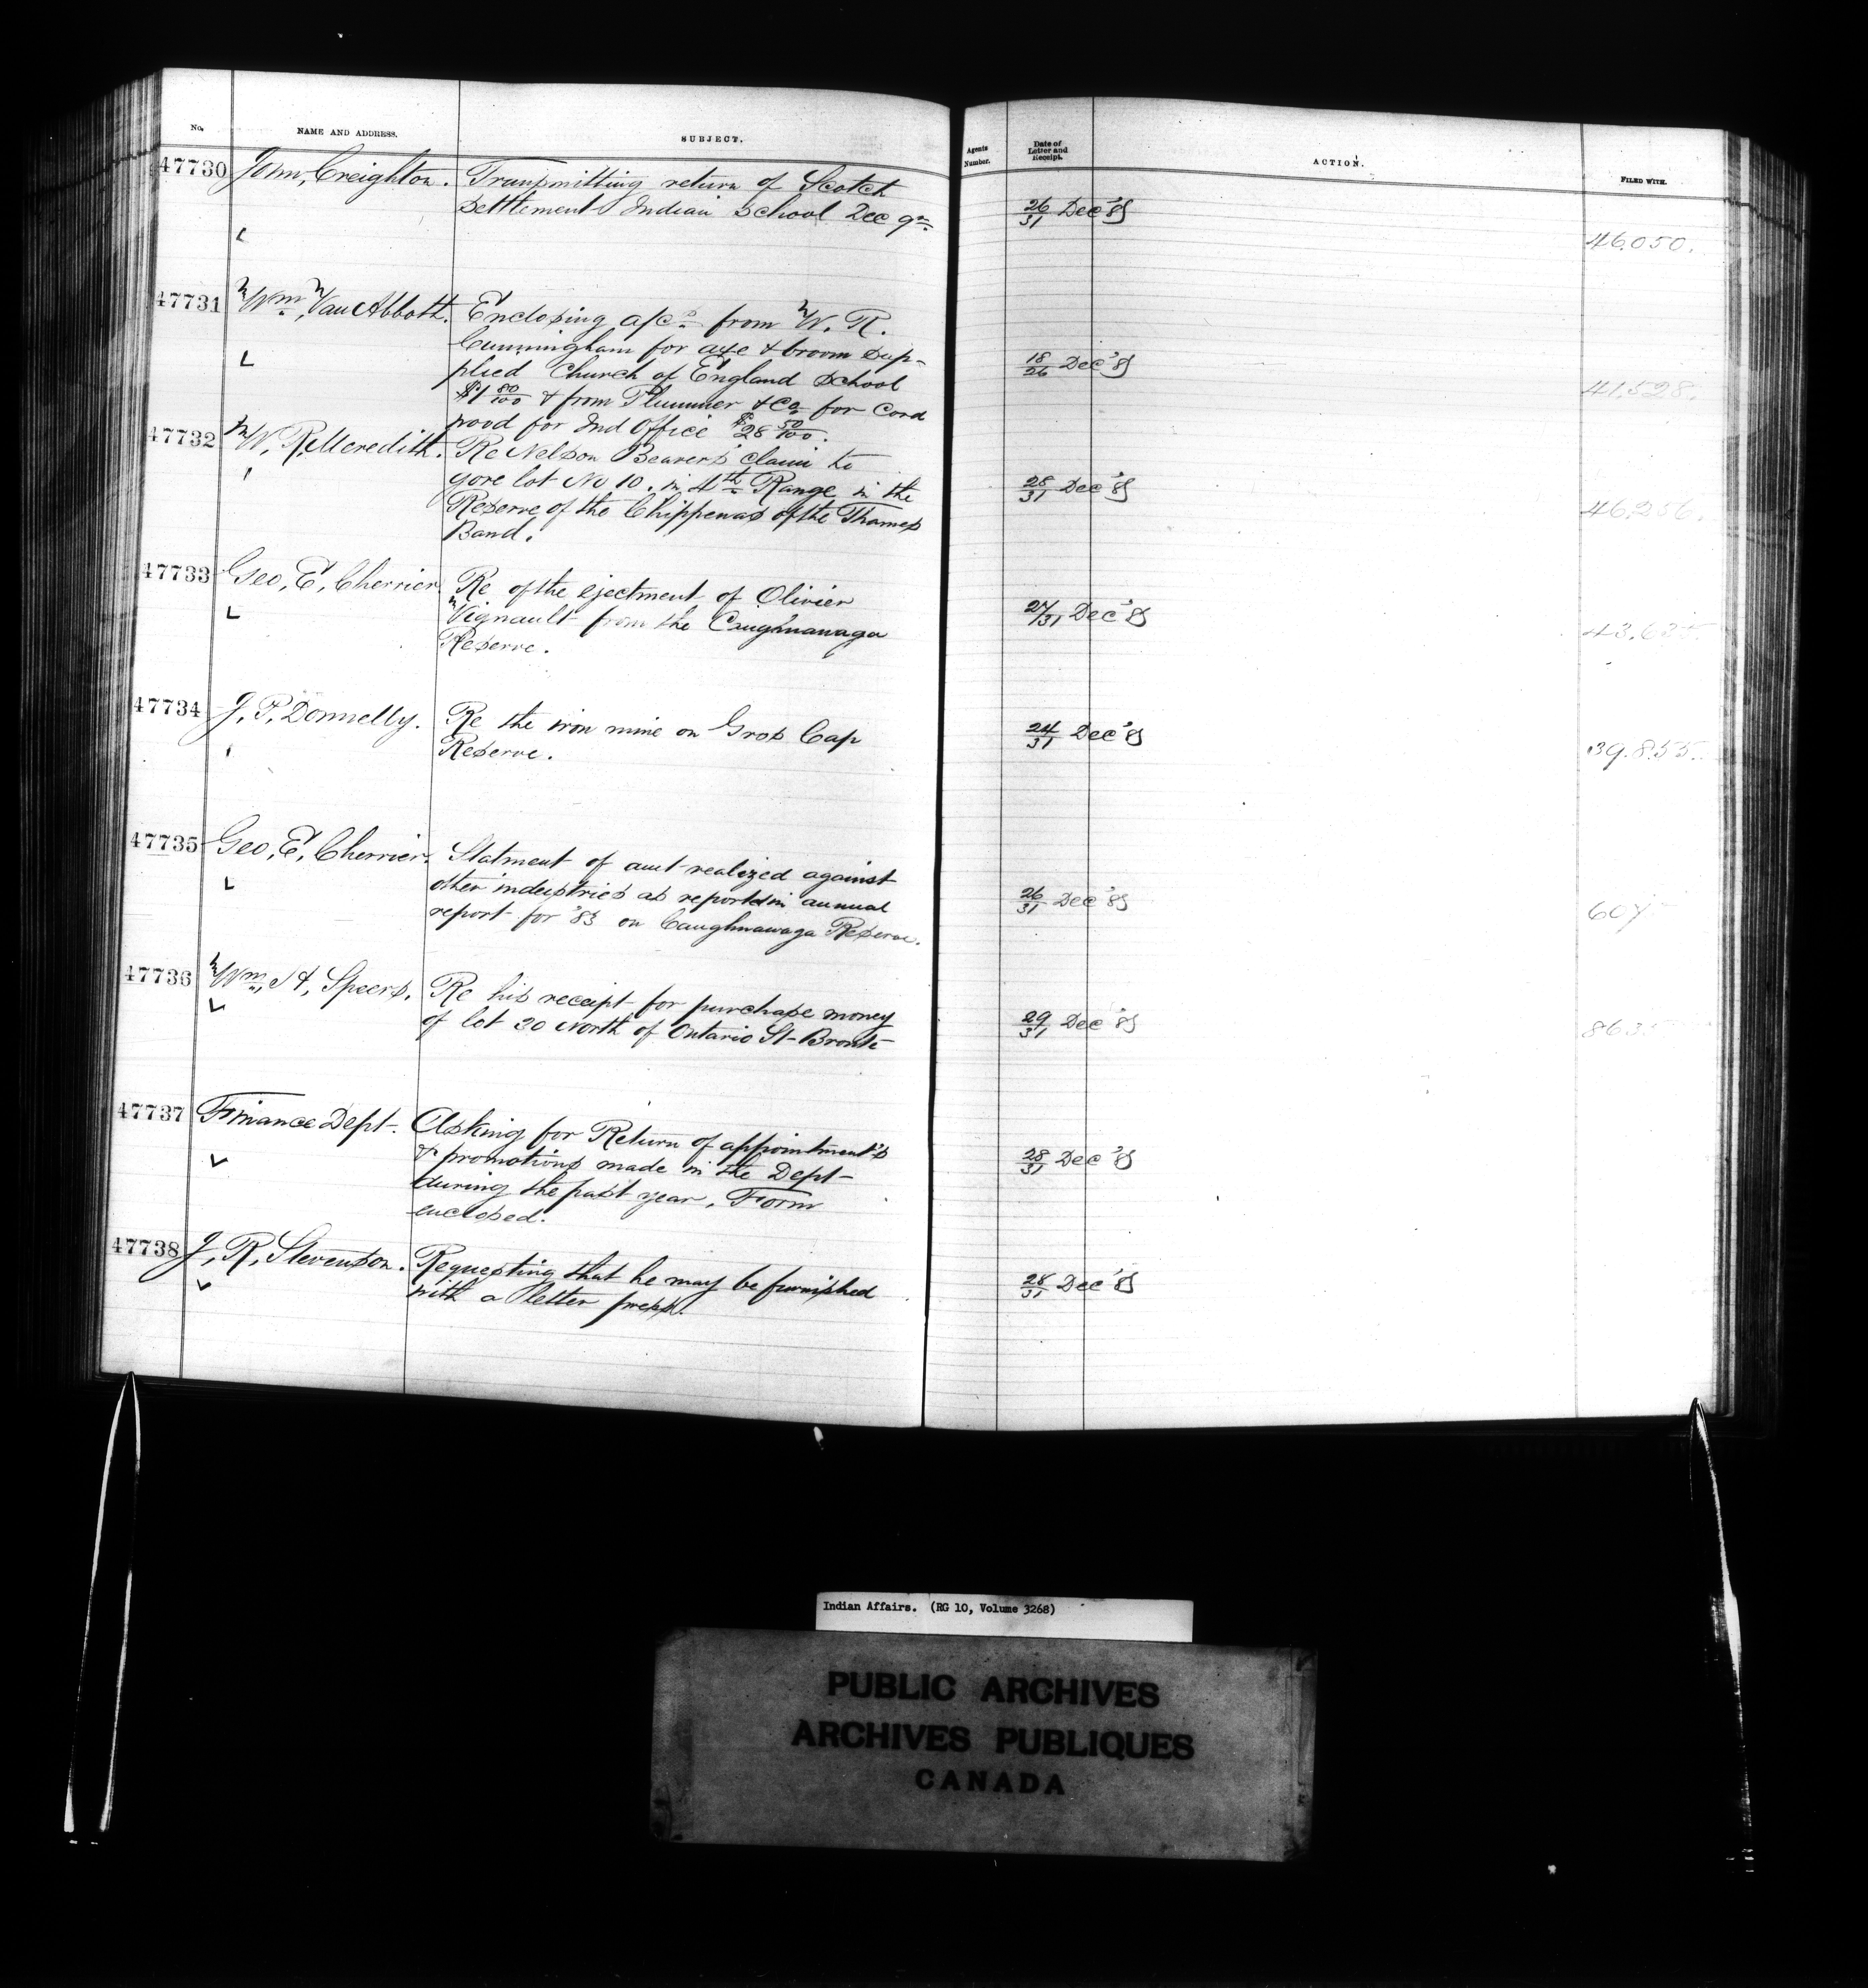 No. NAME AND ADDRESS. SUBJECT. Agents Number. Date of Letter and Receipt. ACTION. FILED WITH.
47730 John, Creighton. Transmitting return of Scotch
settlement Indian School Dec qr. 26/31 Dec '85
46050.
47731 Wm. Van Abbott. Enclosing a/cs from W. R.
Cunningham for axe & broom sup-
plied Church of England School 18/26 Dec '85
$1 80/100 & from Plummer & Co for Cord 41,528.
wood for Ind Office $28 50/100.
47732 W. R. Meredith. Re Nelson Beavers claim to
gore lot No 10. in 4th Range in the 28/31 Dec '85
Reserve of the Chippewas of the Thames 46,256.
Band.
47733 Geo, E, Cherrier. Re of the ejectment of Olivier
Vignault from the Caughnawaga 27/31 Dec '85
Reserve. 43,635
47734 J, P, Donnelly. Re the iron mine on Gros Cap
Reserve. 24/31 Dec '85
39.855.
47735 Geo, E, Cherrier. Statment of amt realized against
other industries as reported in annual 26/31 Dec '85
report for '85 on Caughnawaga Reserve. 607
47736 Wm, H, Speers. Re his receipt for purchase money
of lot 30 North of Ontario St - Bronte 29/31 Dec '85
863
47737 Finance Dept. Asking for Return of appointment's
& promotions made in the Dept - 28/31 Dec '85
during the past year, Form
enclosed.
47738 J, R, Stevenson. Requesting that he may be furnished
with a letter press. 28/31 Dec '85
Indian Affairs. (RG 10, Volume 3268)
PUBLIC ARCHIVES
ARCHIVES PUBLIQUES
CANADA